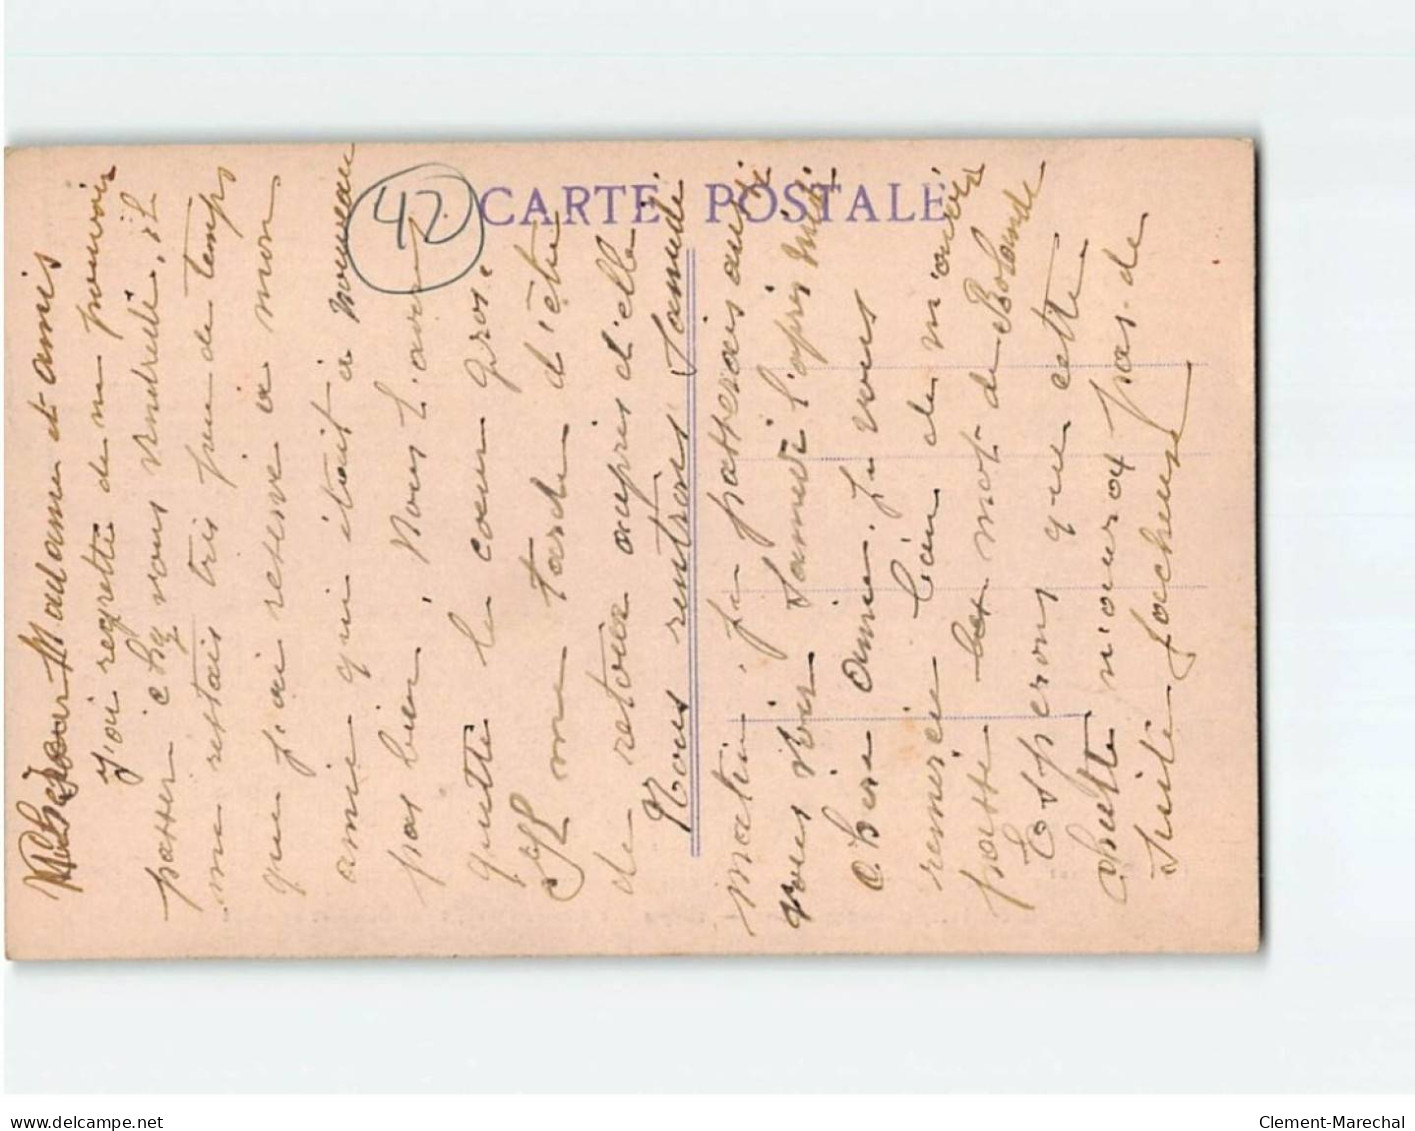 CARTE POSTALE
42
Madame et amis
J'ai regretté de ne pouvoir
passer chez vous vendredi, il
me restais très peu de temps
que j'ai reservé a mon
amie qui était à nouveau
pas bien. Nous l'avons
quitté le cœur gros.
Il me tarde d'être
de retour auprès d'elle
Nous rentrons Samedi
matin. Je passerais aussi
vous voir Samedi l'après midi
chère amie. Je vous
remercie bien de m'avoir
passé les mot de Bolande
Espérons que cette
chutte n'aura pas de
suite facheuse
Clement-Marechal
www.delcampe.net